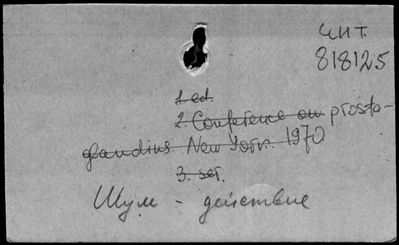 чит.
818125
1. ed.
2. Conference on prosta-
glandins. New York. 1970
3. ser.
Шум - действие